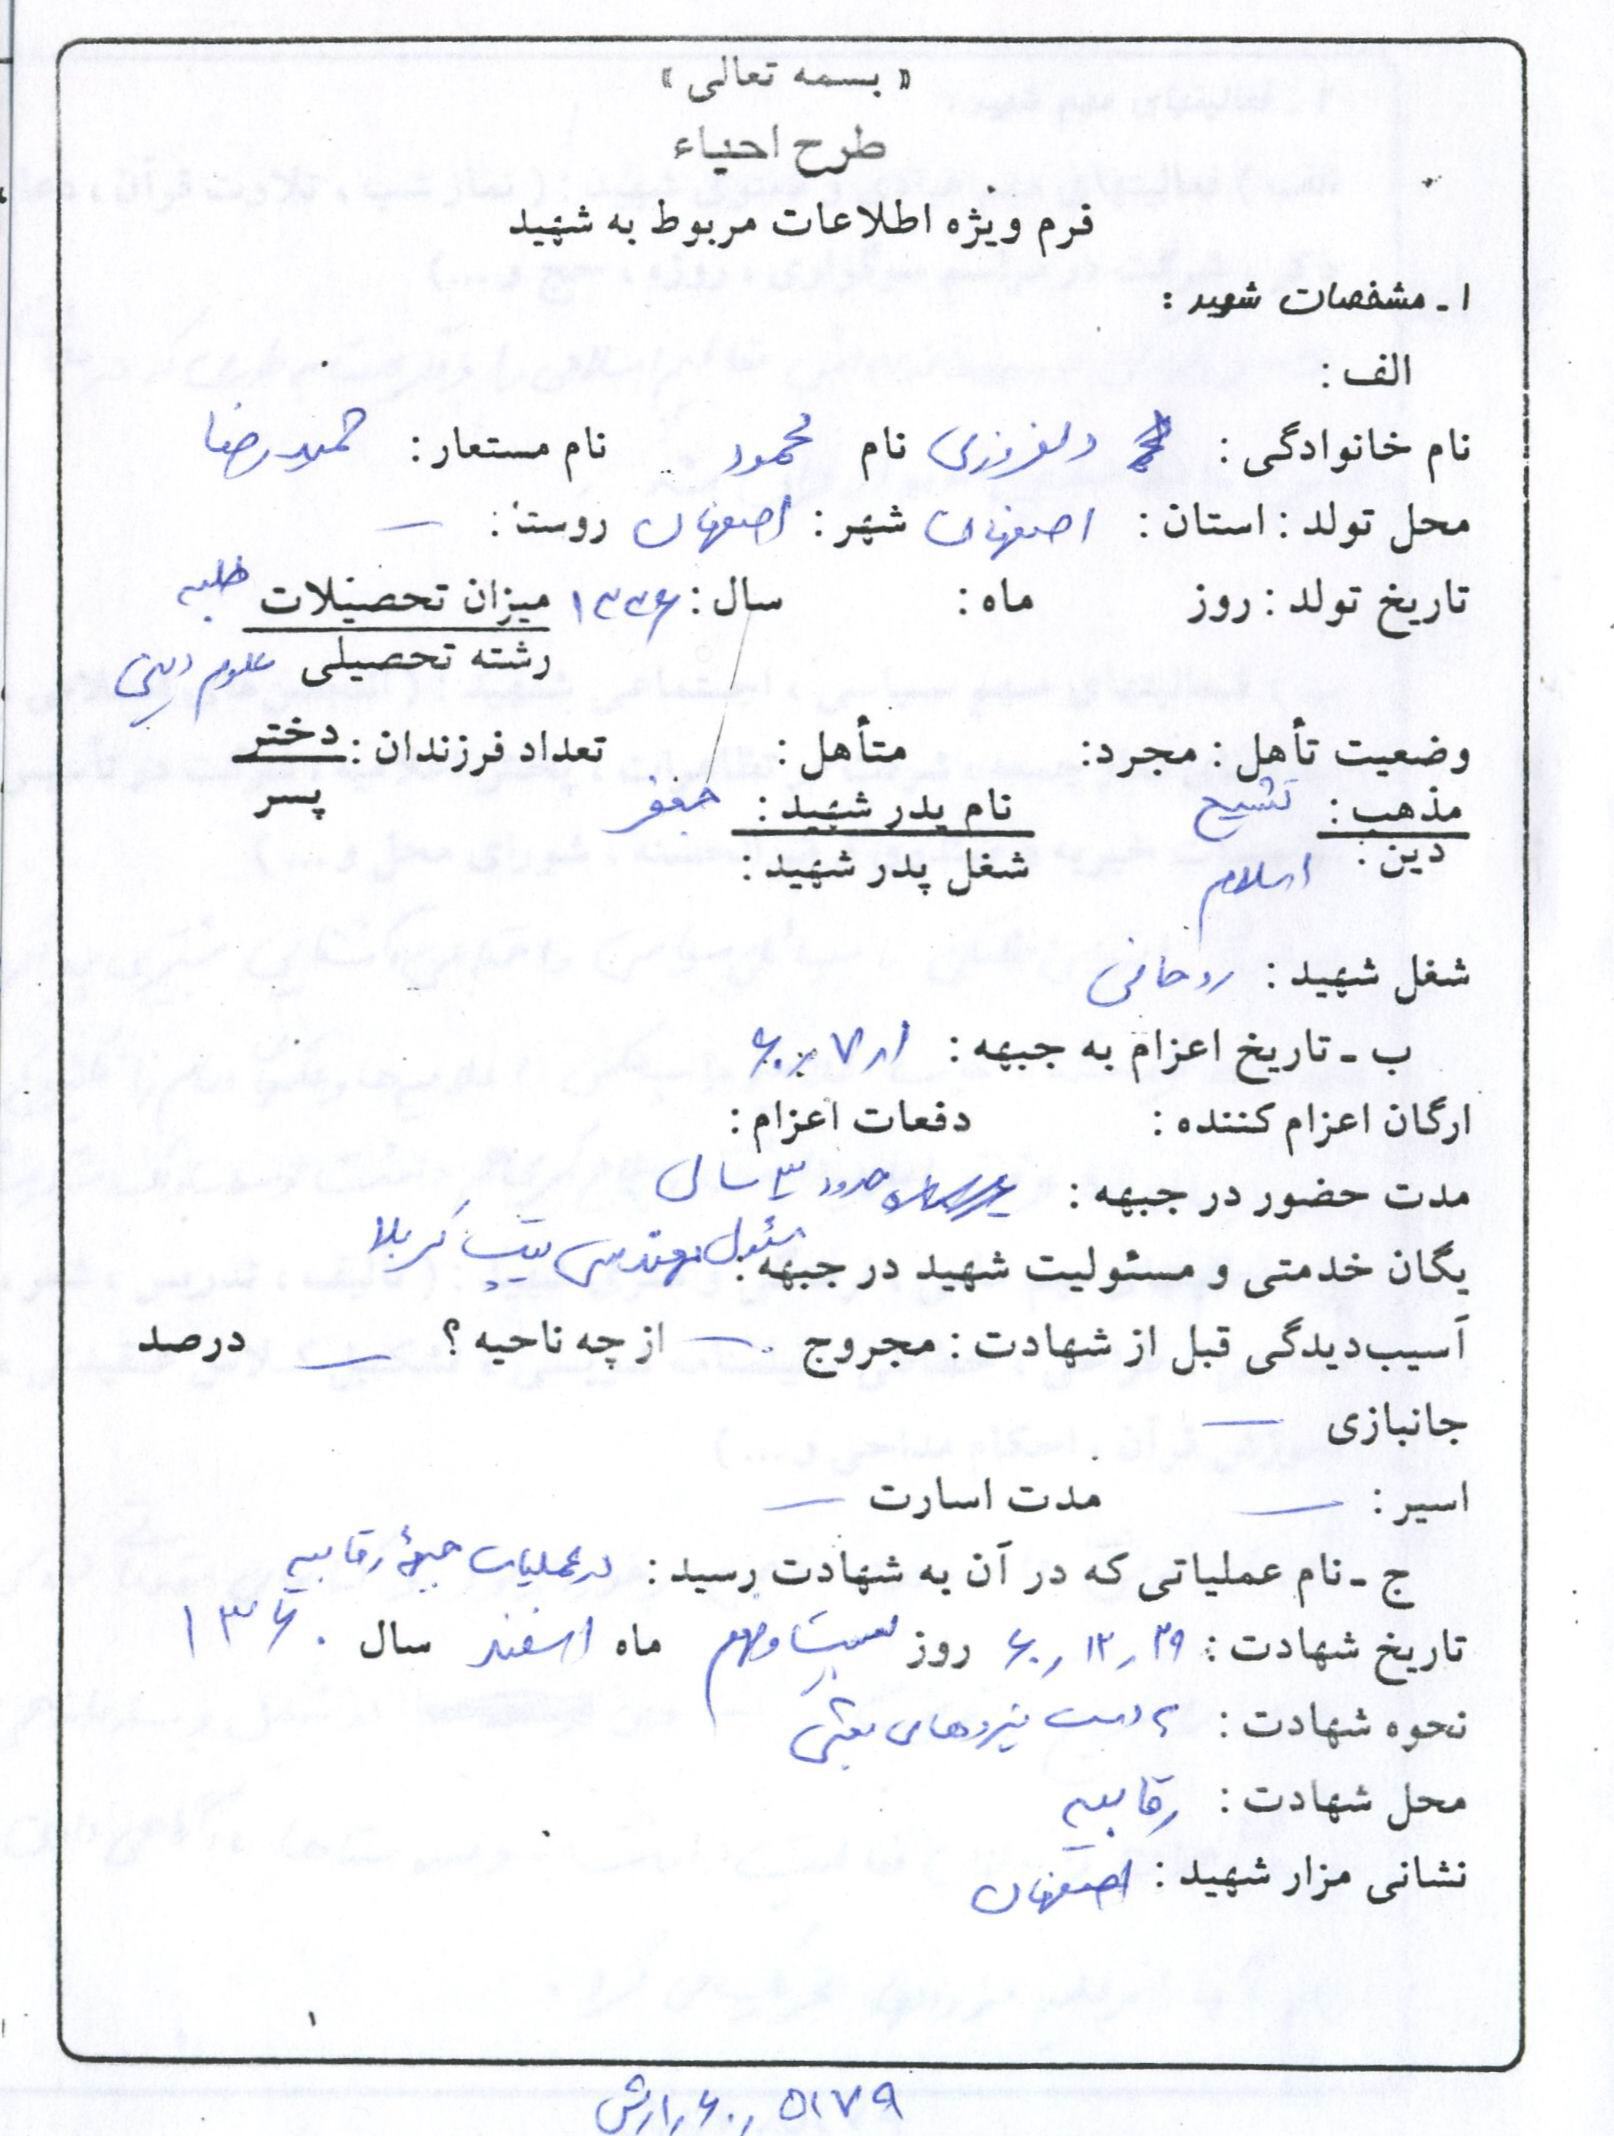 « بسمه تعالی »
طرح احیاء
فرم ویژه اطلاعات مربوط به شهید
۱ـ مشخصات شهید :
الف :
نام خانوادگی : دلفروزی نام محمود نام مستعار : حمیدرضا
محل تولد : استان : اصفهان شهر : اصفهان روستا : —
تاریخ تولد : روز ماه : سال : ۱۳۳۶ میزان تحصیلات طلبه
رشته تحصیلی علوم دینی
وضعیت تأهل : مجرد: متأهل : تعداد فرزندان : دختر
پسر
مذهب : تشیع نام پدر شهید : جعفر
دین : اسلام شغل پدر شهید :
شغل شهید : روحانی
ب ـ تاریخ اعزام به جبهه :
ارگان اعزام کننده : دفعات اعزام :
مدت حضور در جبهه : حدود ۳ سال
یگان خدمتی و مسئولیت شهید در جبهه : مسئول مهندسی تیپ کربلا
آسیب‌دیدگی قبل از شهادت : مجروح — از چه ناحیه ؟ — درصد
جانبازی —
اسیر : — مدت اسارت —
ج ـ نام عملیاتی که در آن به شهادت رسید : در عملیات جبههٔ رقابیه
تاریخ شهادت : ۶۰٫۱۲٫۲۹ روز بیست و نهم ماه اسفند سال ۱۳۶۰
نحوه شهادت : بدست نیروهای بعثی
محل شهادت : رقابیه
نشانی مزار شهید : اصفهان
۱